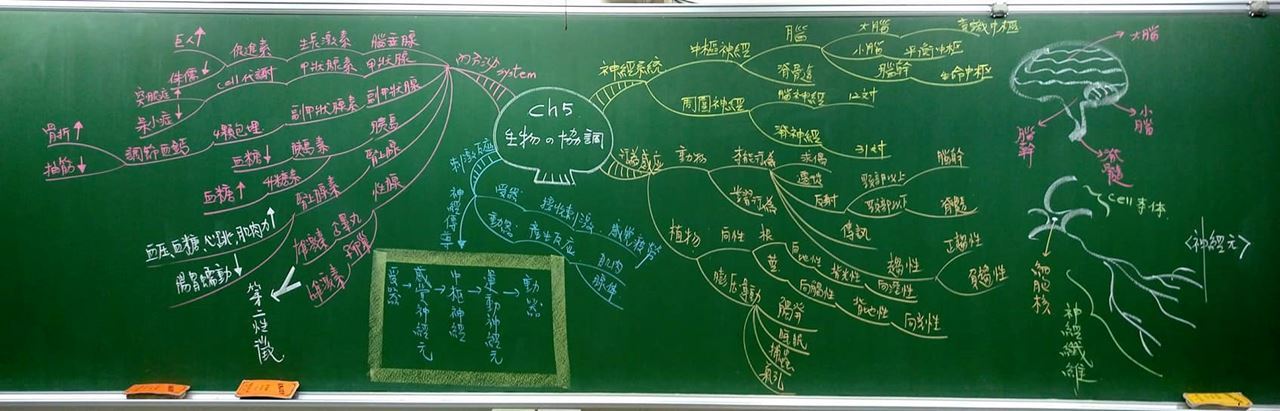 ch5
生物の協調
內分泌
system
腦垂腺
生長激素
促進素
巨人↑
侏儒↓
甲狀腺
甲狀腺素
cell代謝
突眼症↑
呆小症↓
副甲狀腺
副甲狀腺素
4顆包埋
調節血鈣
骨折↑
抽筋↓
胰島
胰島素
血糖↓
升糖素
血糖↑
腎上腺
腎上腺素
血压、血糖、心跳、肌肉力↑
腸胃蠕動↓
性腺
睪丸
卵巢
雄激素
雌激素
第二性徵
刺激反應
受器
接收刺激
感覺
動器
產生反應
肌肉
腺体
神經傳導
受器→感覺神經元→中樞神經→運動神經元→動器
神經系統
中樞神經
腦
大腦
意識中樞
小腦
平衡中樞
腦幹
生命中樞
脊髓
周圍神經
腦神經
12对
脊神經
31对
感應
動物
本能行為
求偶
遷徙
反射
頸部以上
腦幹
頸部以下
脊髓
傳訊
趨性
正趨性
負趨性
學習行為
植物
向性
根
向地性
向溼性
莖
背光性
向觸性
背地性
向光性
膨压運動
觸發
睡眠
捕蟲
氣孔
大腦
小腦
腦幹
脊髓
cell本体
<神經元>
細胞核
神經纖維